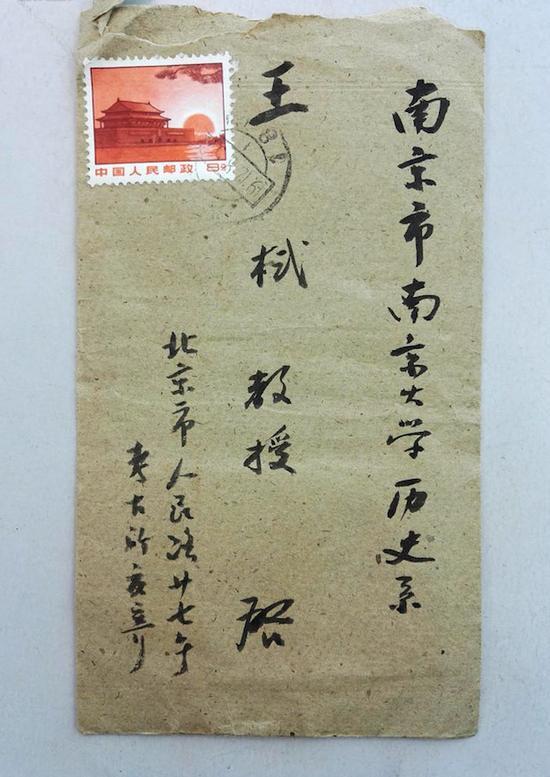 南京市南京大学历史系
王栻教授 启
北京市人民路廿七号
考古所夏寄
中国人民邮政 8分